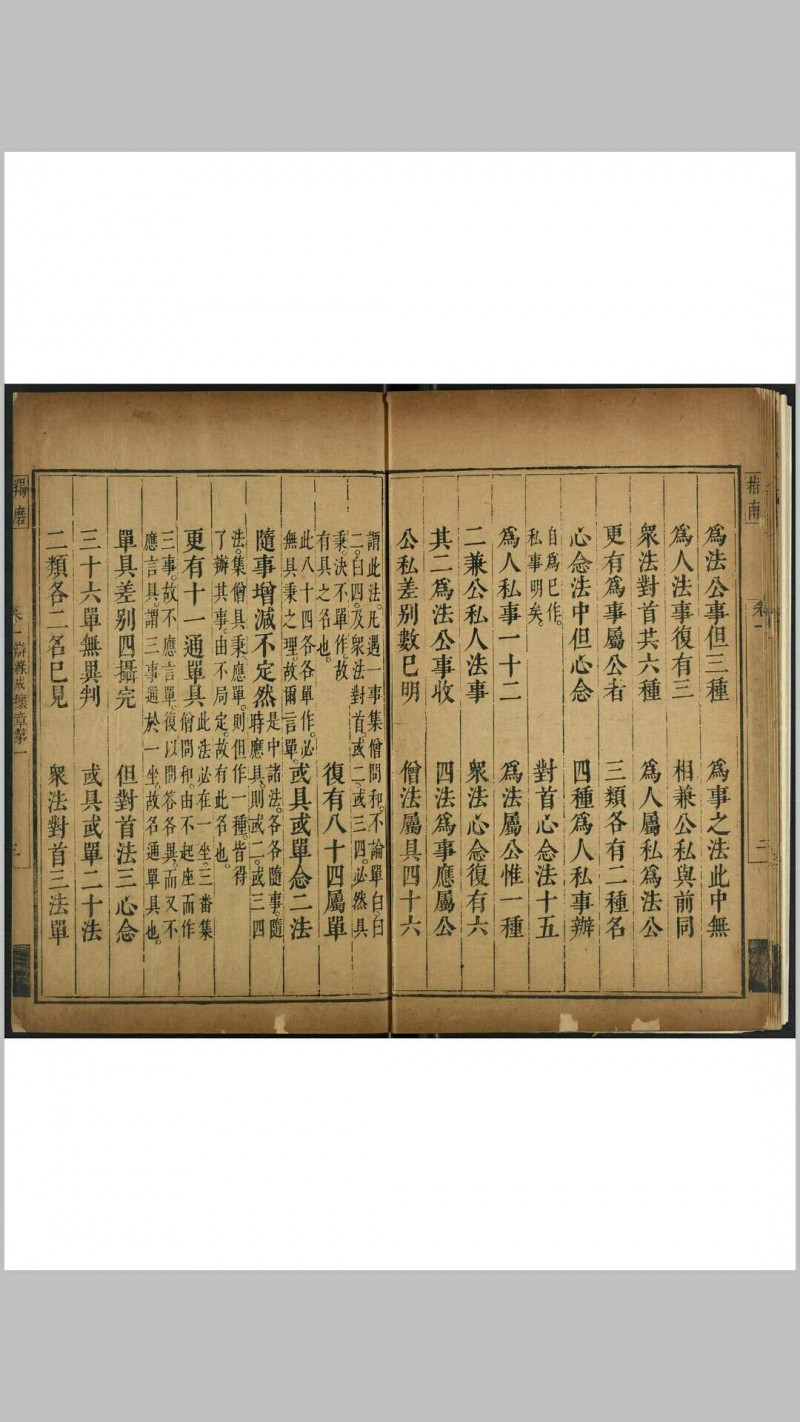 指南
卷一
二
爲法公事但三種　爲事之法此中無
爲人法事復有三　相兼公私與前同
衆法對首共六種　爲人屬私爲法公
更有爲事屬公者　三類各有二種名
心念法中但心念　四種爲人私事辦
自爲已作。
私事明矣。
對首心念法十五
爲人私事一十二　爲法屬公惟一種
二兼公私人法事　衆法心念復有六
其二爲法公事收　四法爲事應屬公
公私差别數已明　僧法屬具四十六
謂此法。凡遇一事集僧問和。不論單白。白
二。白四。及衆法對首。或二。或三四。必然具
秉。決不單作。故
有具之名也。
復有八十四屬單
此八十四各各單作。必
無具秉之理。故爾言單
或具或單念二法
隨事增減不定然
是中諸法。各各隨事。隨
時應具。則或二。或三四
法。集僧具秉。應單。則但作一種。皆得
了辦其事。由不局定。故有此名也。
更有十一通單具
此法必在一坐。三番集
僧問和。由不起座而作
三事。故不應言單。復以問答各異。而又不
應言具。謂三事通於一坐。故名通單具也。
單具差别四攝完　但對首法三心念
三十六單無異判　或具或單二十法
二類各二名已見　衆法對首三法單
羯磨
卷一辯緣成壞章第一
三